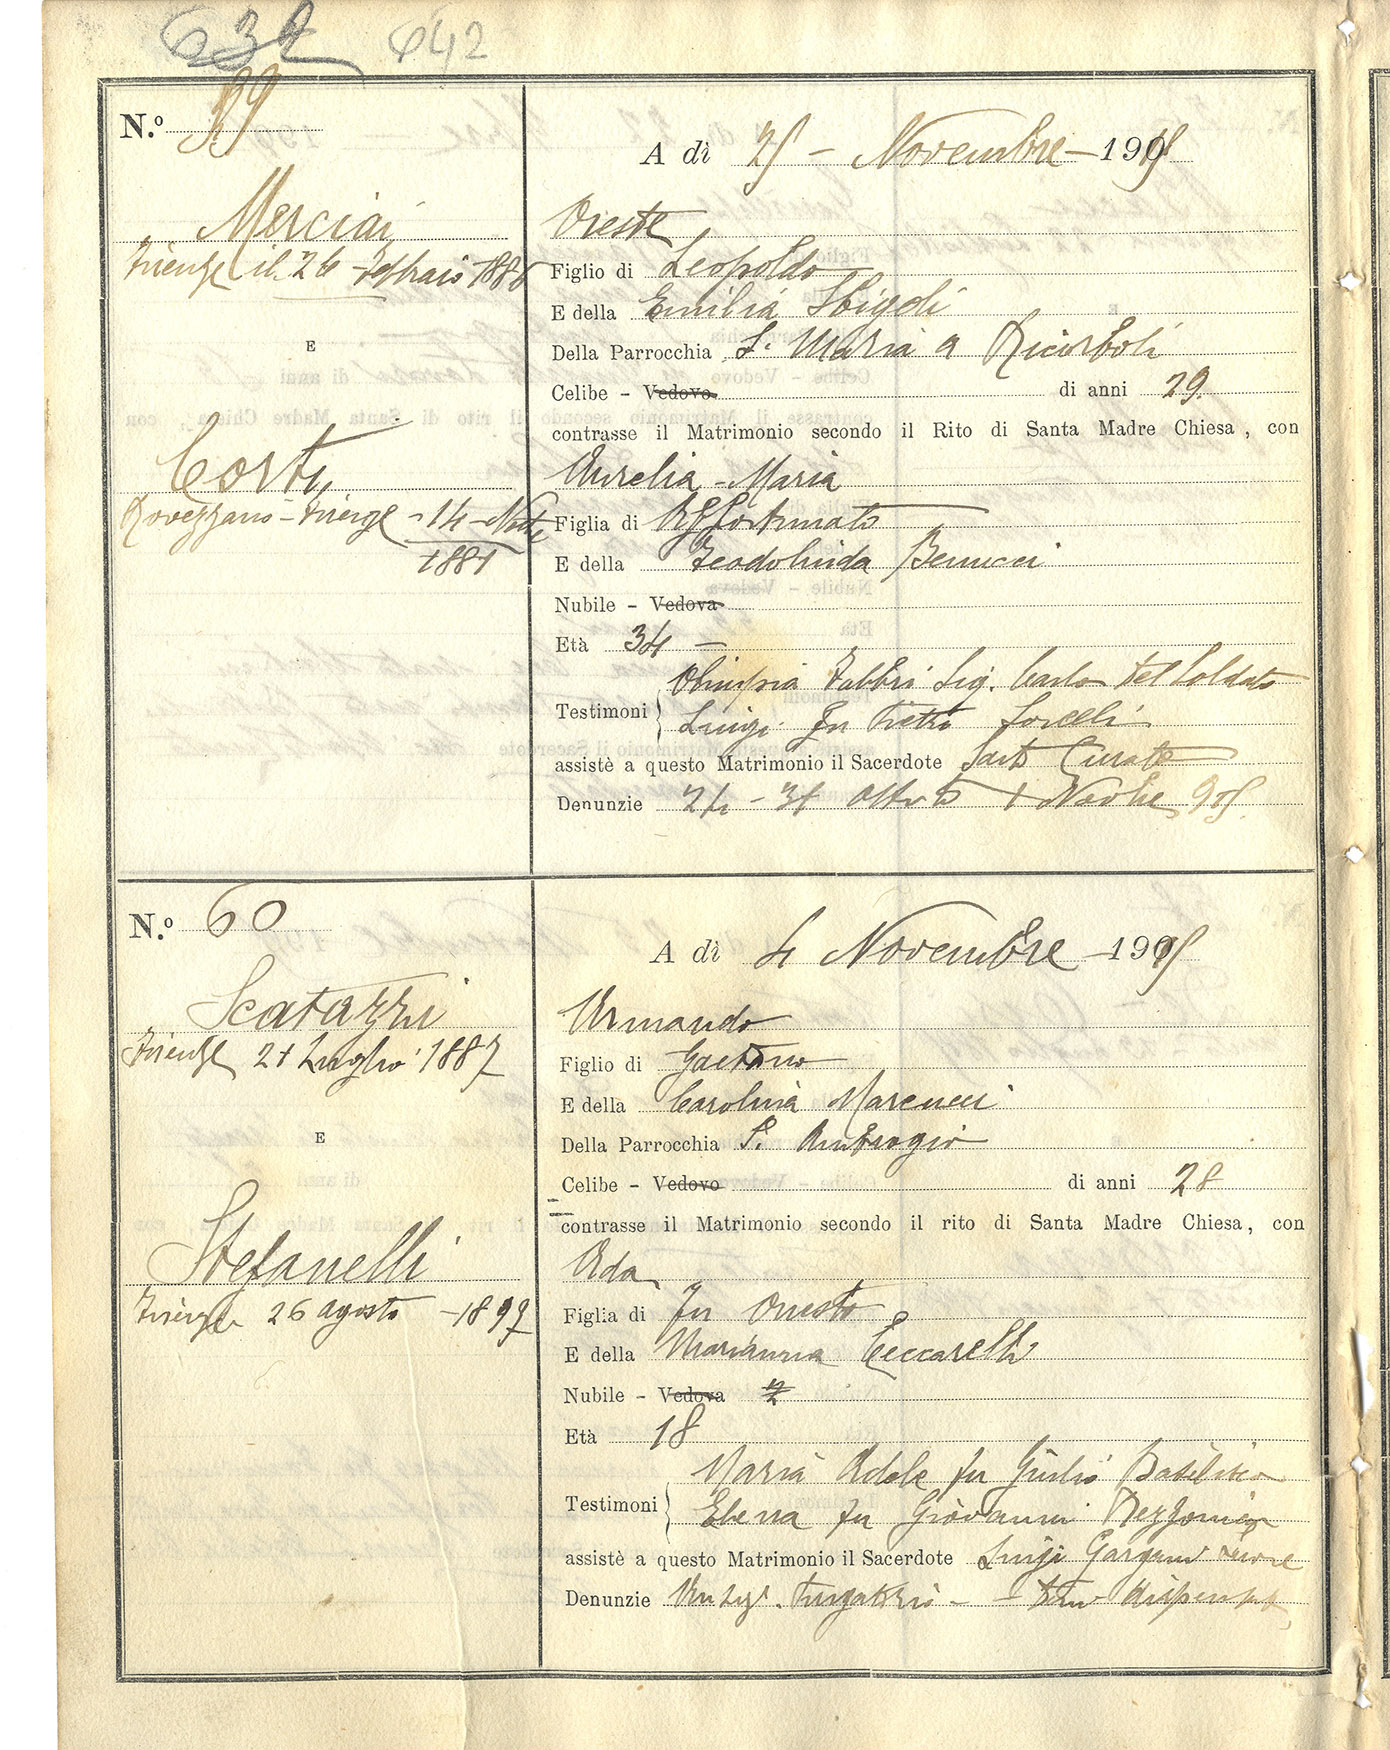 637 642
N.º 59
A dì 25 - Novembre - 1915
Merciai
Oreste
Firenze il 26 Febbraio 1886
Figlio di Leopoldo
E della Emilia Sbigoli
E
Della Parrocchia S. Maria a Ricorboli
Celibe - Vedovo di anni 29.
contrasse il Matrimonio secondo il Rito di Santa Madre Chiesa, con
Corti
Aurelia - Maria
Rovezzano - Firenze - 14 - Nbre
1881
Figlia di Affortunato
E della Teodolinda Benucci
Nubile - Vedova
Età 34 -
Testimoni Olimpia Fabbri Sig. Carlo Del Soldato
Luigi fu Pietro Sorelli
assistè a questo Matrimonio il Sacerdote Curato
Denunzie 24 - 31 Ottob 1 Novbe 915.
N.º 60
A dì 4 Novembre - 1915
Scatazzi
Armando
Firenze 21 Luglio 1887
Figlio di Gaetano
E della Carolina Marcucci
E
Della Parrocchia S. Ambrogio
Celibe - Vedovo di anni 28
contrasse il Matrimonio secondo il rito di Santa Madre Chiesa, con
Stefanelli
Ada
Firenze 26 agosto - 1897
Figlia di fu Onesto
E della Marianna Ceccarelli
Nubile - Vedova
Età 18
Testimoni Maria Adele fu Giulio Basilisco
Elena fu Giovanni Rezzonico
assistè a questo Matrimonio il Sacerdote Luigi Gargani
Denunzie